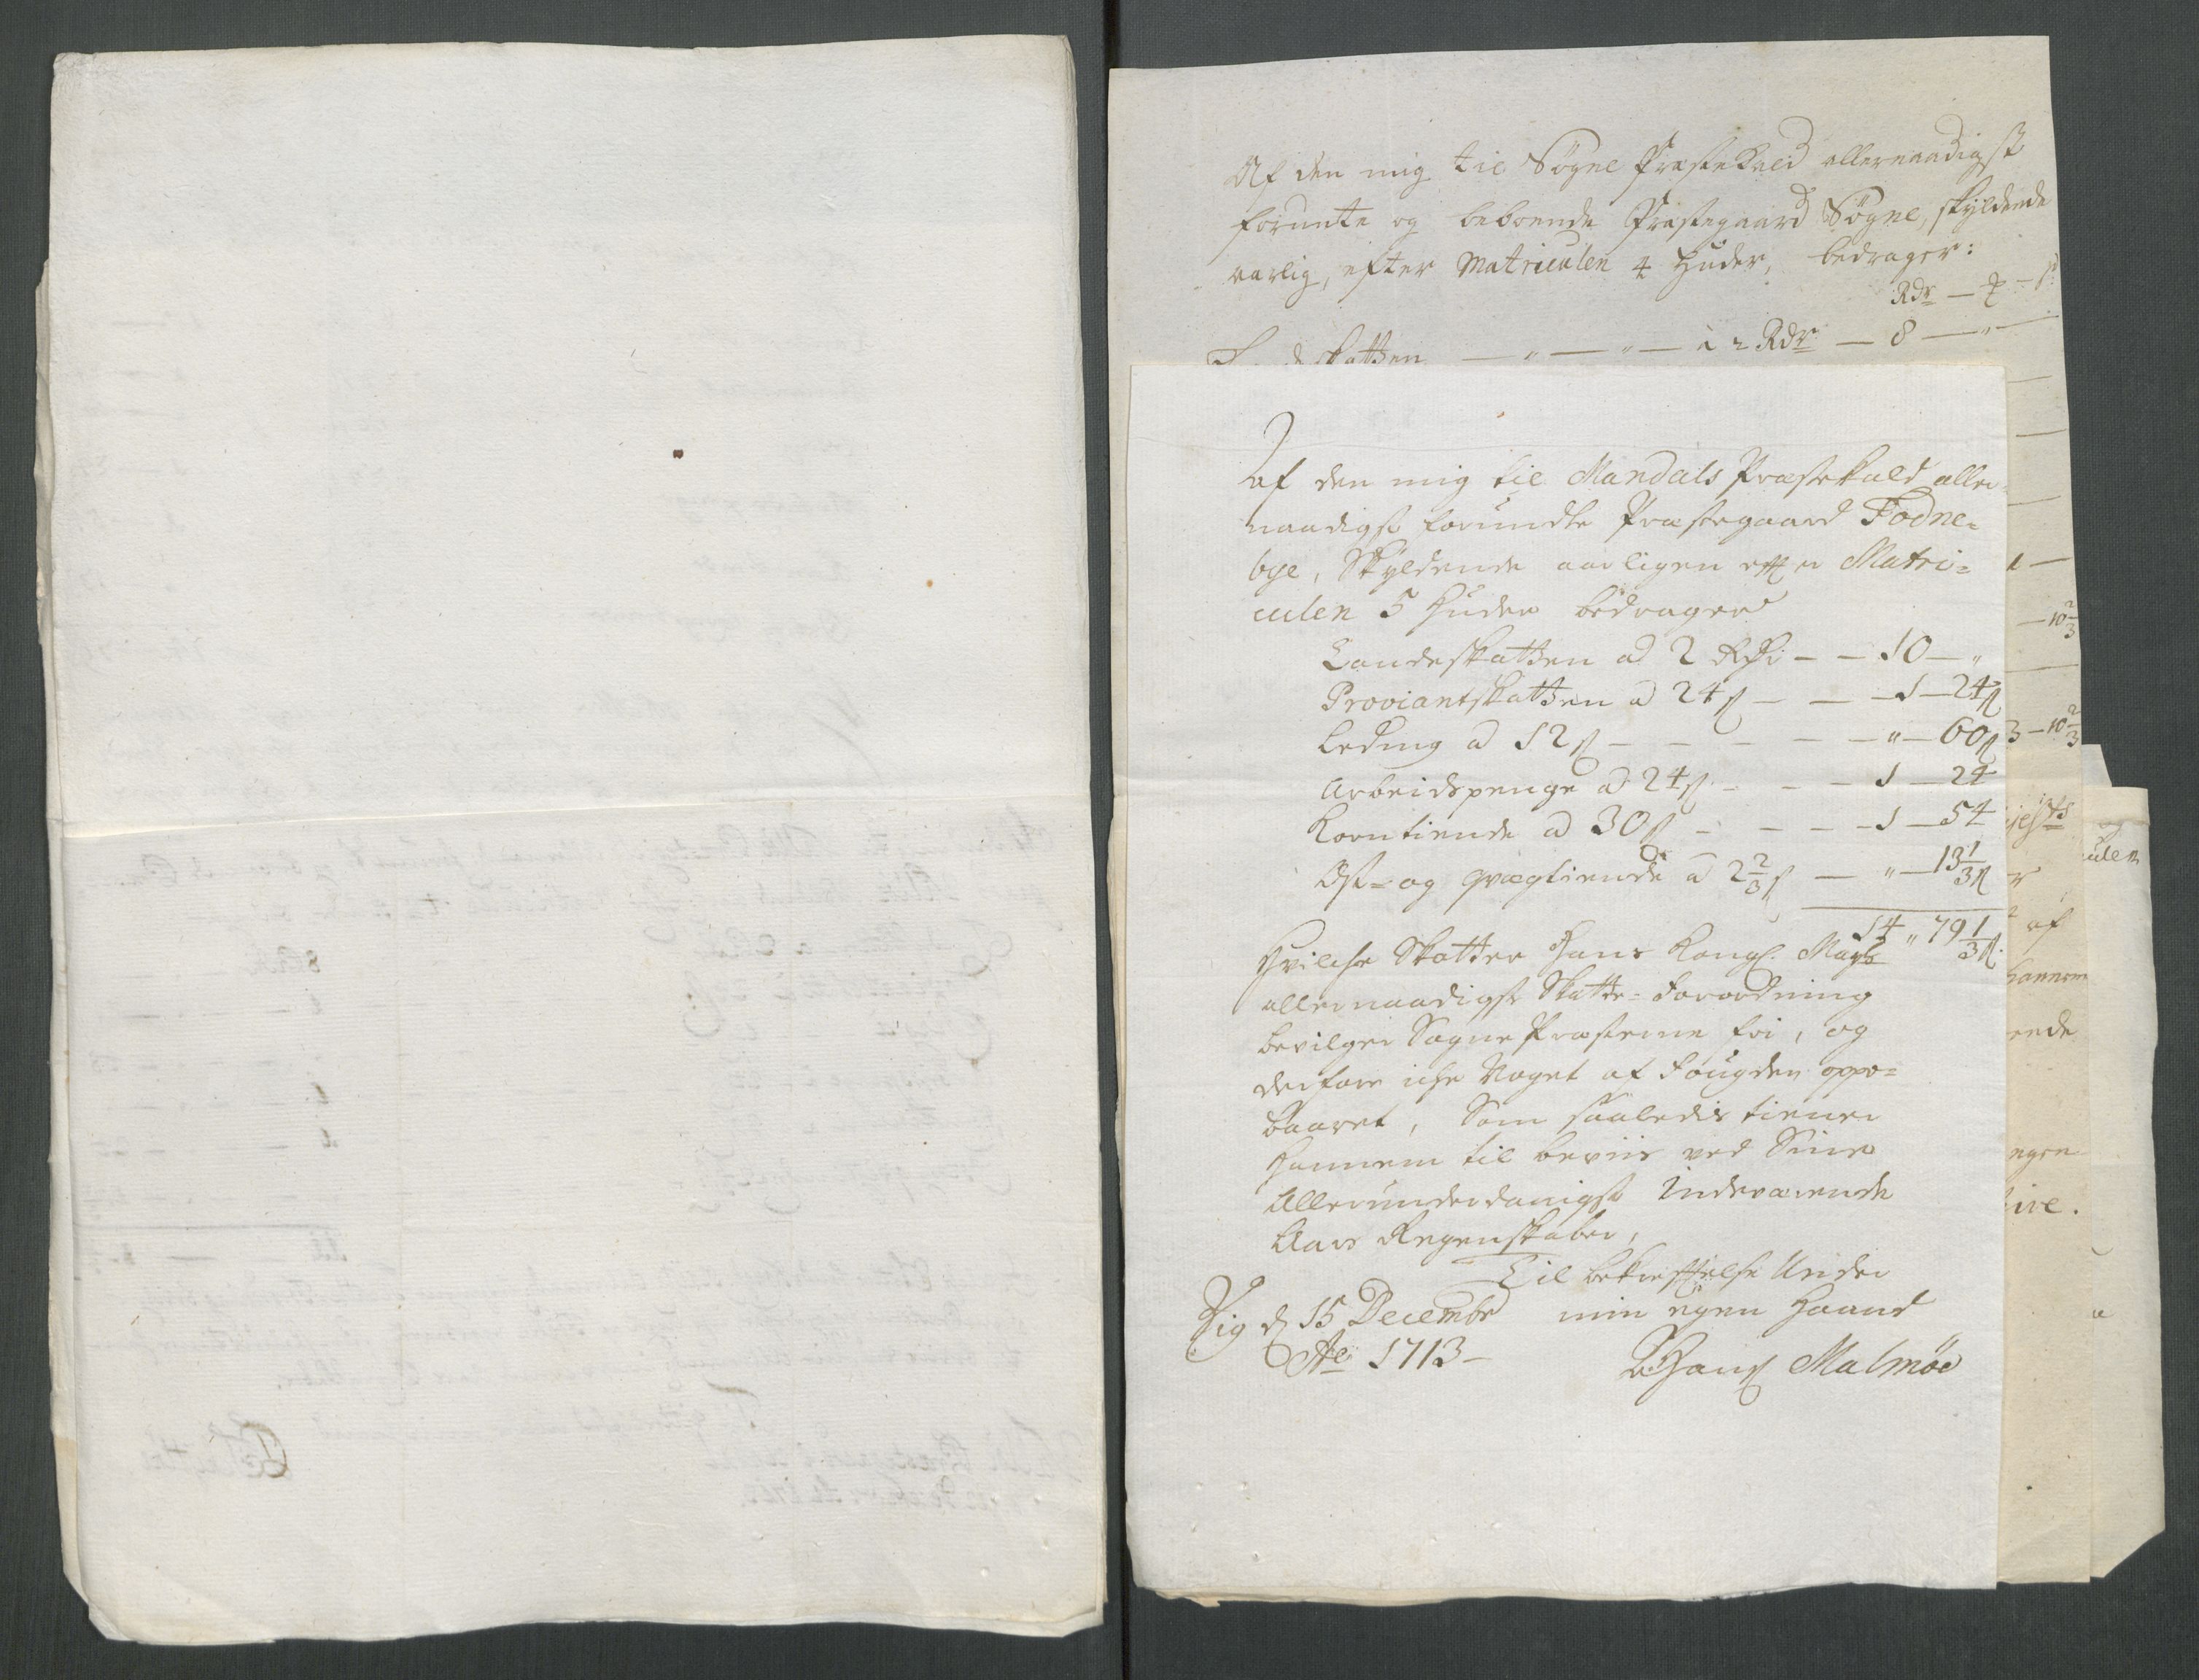 Af den mig til Søgne Præstekald allernaadigst
forunte og beboende Præstegaard Søgne, skyldende
aarlig, efter Matriculen 4 Huder, bedrager:
Rdr — ȣ — ſ
skatten — „ — „ — à 2 Rdr — 8 — „ —
af den mig til Mandals Præstekald aller-
naadigst forundte Præstegaard Fodne=
bye, Skyldende aarligen efter Matri=
culen 5 Huder bedrager
Landeskatten ad 2 Rdr — — 10 — „
Proviantskatten ad 24 ſ — — — 1 — 24 ſ
Leding ad 12 ſ — — — — — „ — 60 ſ
Arbeidspenge ad 24 ſ — — — 1 — 24
Korntiende ad 30 ſ — — — — 1 — 54
Ost= og qvægtiende ad 2 2/3 ſ — „ — 13 1/3 ſ
14 „ 79 1/3 ſ.
Hvilche Skatter Hans Kongl. Mayts
allernaadigst Skatte=Forordning
bevilger SognePræsterne fri, og
derfore iche Noget af Fougden oppe=
baaret, Som saaledis tiener
Hannem til beviis ved Sine
Allerunderdanigst Indeværende
Aars Regenskaber,
Til bekreftelse Under
Vig d 15 Decembr min egen Haand
Ao 1713 —
Hans Malmøe
1 —
— 10 2/3
3 — 10 2/3
r
af
hannem
ende
egen
ulen